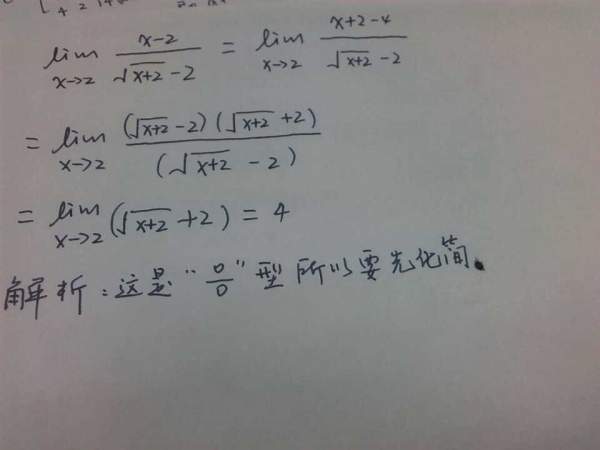 lim x→2 (x-2)/(√(x+2) -2) = lim x→2 (x+2-4)/(√(x+2) -2)
= lim x→2 (√(x+2) -2)(√(x+2) +2)/(√(x+2) -2)
= lim x→2 (√(x+2) +2) = 4
解析:这是“0/0”型所以要先化简.